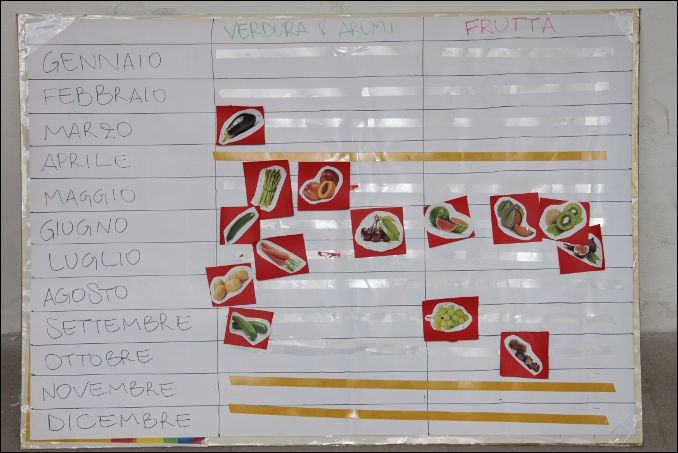 VERDURA & AROMI FRUTTA
GENNAIO
FEBBRAIO
MARZO
APRILE
MAGGIO
GIUGNO
LUGLIO
AGOSTO
SETTEMBRE
OTTOBRE
NOVEMBRE
DICEMBRE